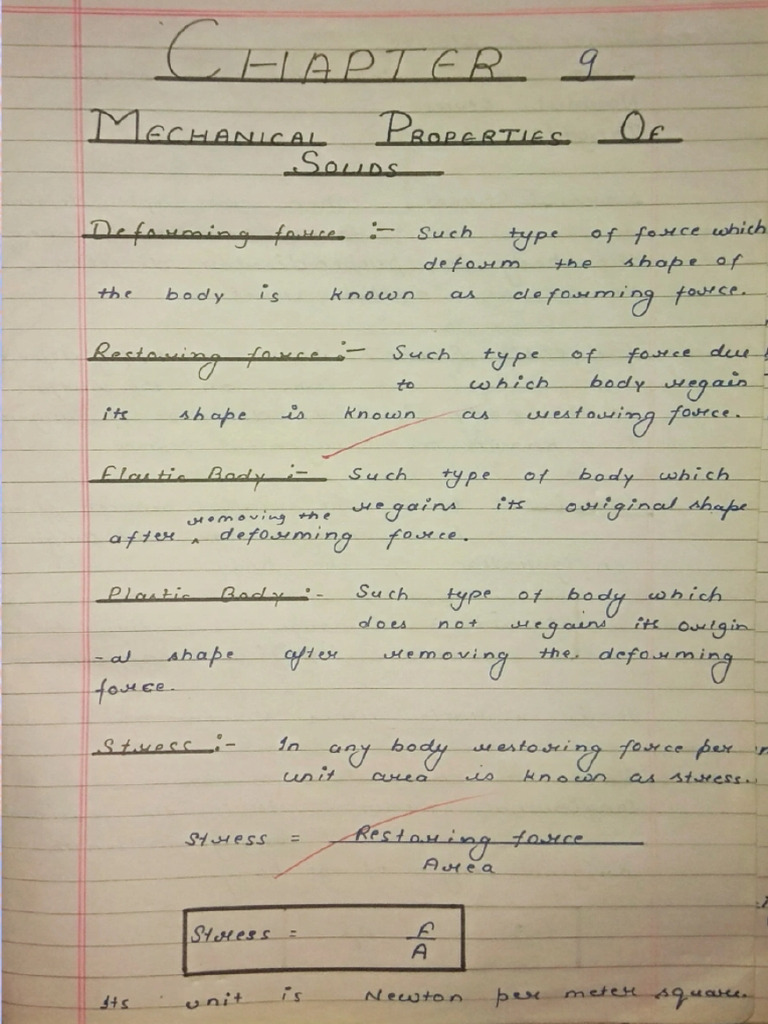 CHAPTER 9
MECHANICAL PROPERTIES OF
SOLIDS
Deforming force :- Such type of force which
deform the shape of
the body is known as deforming force.
Restoring force :- Such type of force due
to which body regain
its shape is known as restoring force.
Elastic Body :- Such type of body which
removing the regains its original shape
after ^ deforming force.
Plastic Body :- Such type of body which
does not regains its origin
-al shape after removing the deforming
force.
Stress :- In any body restoring force per
unit area is known as stress.
Stress = Restoring force
Area
Stress = F
A
Its unit is Newton per meter square.